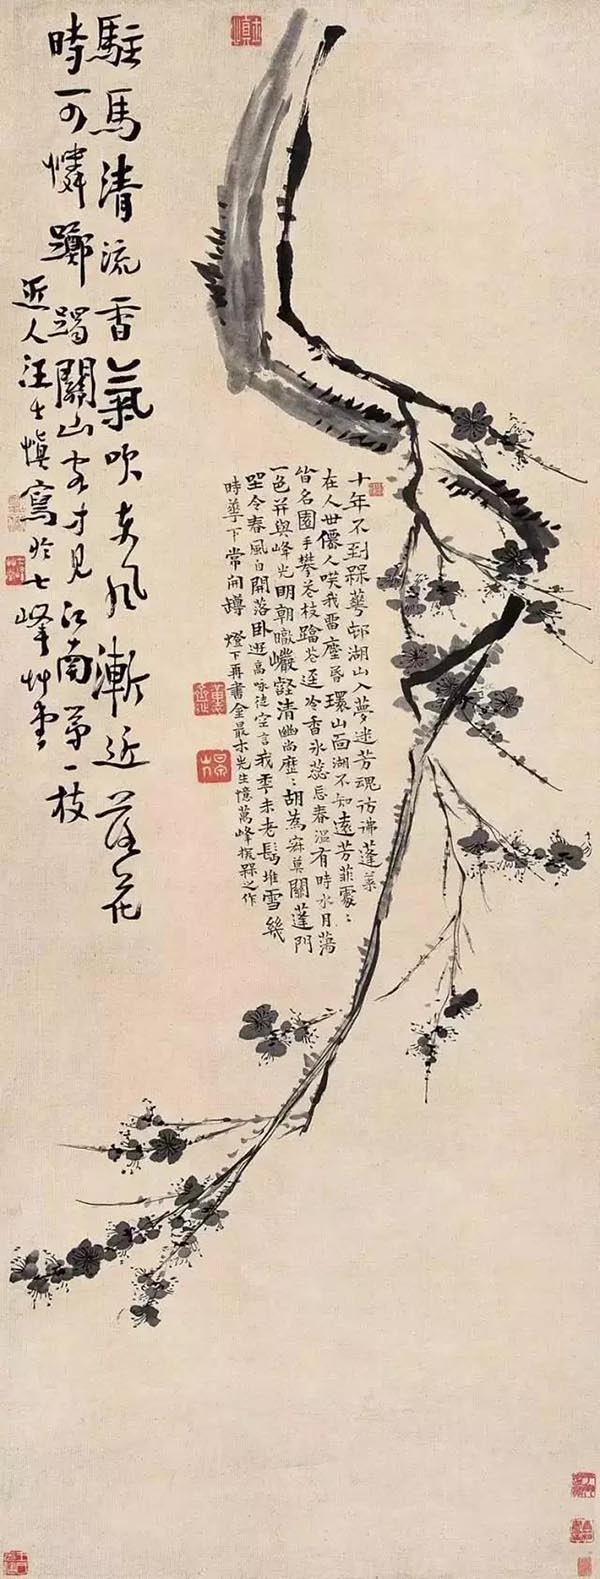 十年不到槑華邨湖山入夢迷芳魂彷彿蓬萊
在人世僊人咲我留塵昏環山面湖不知遠芳菲處〻
皆名園手攀花枝蹋花逕冷香冰蕊忘春溫有時水月蕩
一色并與峰光明朝暾巖壑清幽尚歷〻胡為寂莫關蓬門
坐令春風自開落臥遊高咏徒空言我季未老髩堆雪幾
時華下常開罇 燈下再書金最木先生憶萬峰探槑之作
駐馬清流香氣吹東風漸近落花
時可憐躑躅關山客才見江南第一枝
近人汪士慎寫於七峰草堂